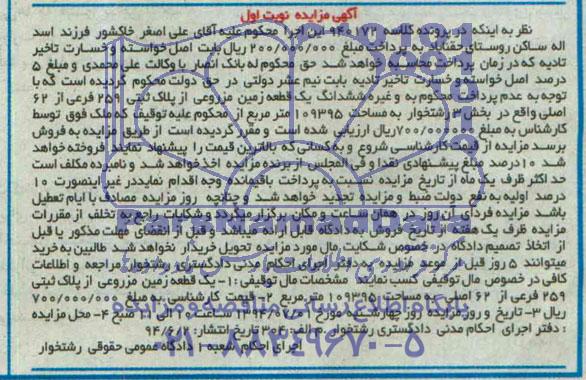 آگهی مزایده نوبت اول
نظر به اینکه در پرونده کلاسه ۹۴۰۱۷۲ این اجرا محکوم علیه آقای علی اصغر خاکشور فرزند اسد
اله ساکن روستای حقناباد به پرداخت مبلغ ۲۰۰/۰۰۰/۰۰۰ ریال بابت اصل خواسته و خسارت تاخیر
تادیه که در زمان پرداخت محاسبه خواهد شد حق محکوم له بانک انصار با وکالت علی محمدی و مبلغ ۵
درصد اصل خواسته و خسارت تاخیر تادیه بابت نیم عشر دولتی در حق دولت محکوم گردیده است که با
توجه به عدم پرداخت محکوم به و غیره ششدانگ یک قطعه زمین مزروعی از پلاک ثبتی ۲۵۹ فرعی از ۶۲
اصلی واقع در بخش ۳ رشتخوار به مساحت ۱۰۹۳۹۵ متر مربع از محکوم علیه توقیف که ملک فوق توسط
کارشناس به مبلغ ۷۰۰/۰۰۰/۰۰۰ ریال ارزیابی شده است و مقرر گردیده است از طریق مزایده به فروش
برسد مزایده از قیمت کارشناسی شروع و به کسانی که بالاترین قیمت را پیشنهاد نمایند فروخته خواهد
شد ۱۰ درصد مبلغ پیشنهادی نقدا و فی المجلس از برنده مزایده اخذ خواهد شد و نامبرده مکلف است
حد اکثر ظرف یک ماه از تاریخ مزایده نسبت به پرداخت باقیمانده وجه اقدام نماید در غیر اینصورت ۱۰
درصد اولیه به نفع دولت ضبط و مزایده تجدید خواهد شد و چنانچه روز مزایده مصادف با ایام تعطیل
باشد مزایده فردای آن روز در همان ساعت و مکان برگزار میگردد و شکایات راجع به تخلف از مقررات
مزایده ظرف یک هفته از تاریخ فروش به دادگاه قابل ارائه میباشد و قبل از انقضای مهلت مذکور یا قبل
از اتخاذ تصمیم دادگاه در خصوص شکایت مال مورد مزایده تحویل خریدار نخواهد شد طالبین به خرید
میتوانند ۵ روز قبل از موعد مزایده به دفتر اجرای احکام مدنی دادگستری رشتخوار مراجعه و اطلاعات
کافی در خصوص مال توقیفی کسب نمایند مشخصات مال توقیفی : ۱- یک قطعه زمین مزروعی از پلاک ثبتی
۲۵۹ فرعی از ۶۲ اصلی به مساحت ۱۰۹۳۹۵ متر مربع ۲- قیمت کارشناسی به مبلغ ۷۰۰/۰۰۰/۰۰۰
ریال ۳- تاریخ و روز مزایده روز چهارشنبه مورخ ۱۳۹۴/۰۷/۰۱ ساعت صبح ۴- محل مزایده
: دفتر اجرای احکام مدنی دادگستری رشتخوار .م الف: ۳۰۶ تاریخ انتشار: ۹۴/۶/۲
اجرای احکام شعبه ۱ دادگاه عمومی حقوقی رشتخوار
پایگاه اطلاع رسانی مناقصه و مزایده
۰۲۱-۸۸۳۴۹۶۷۰-۵